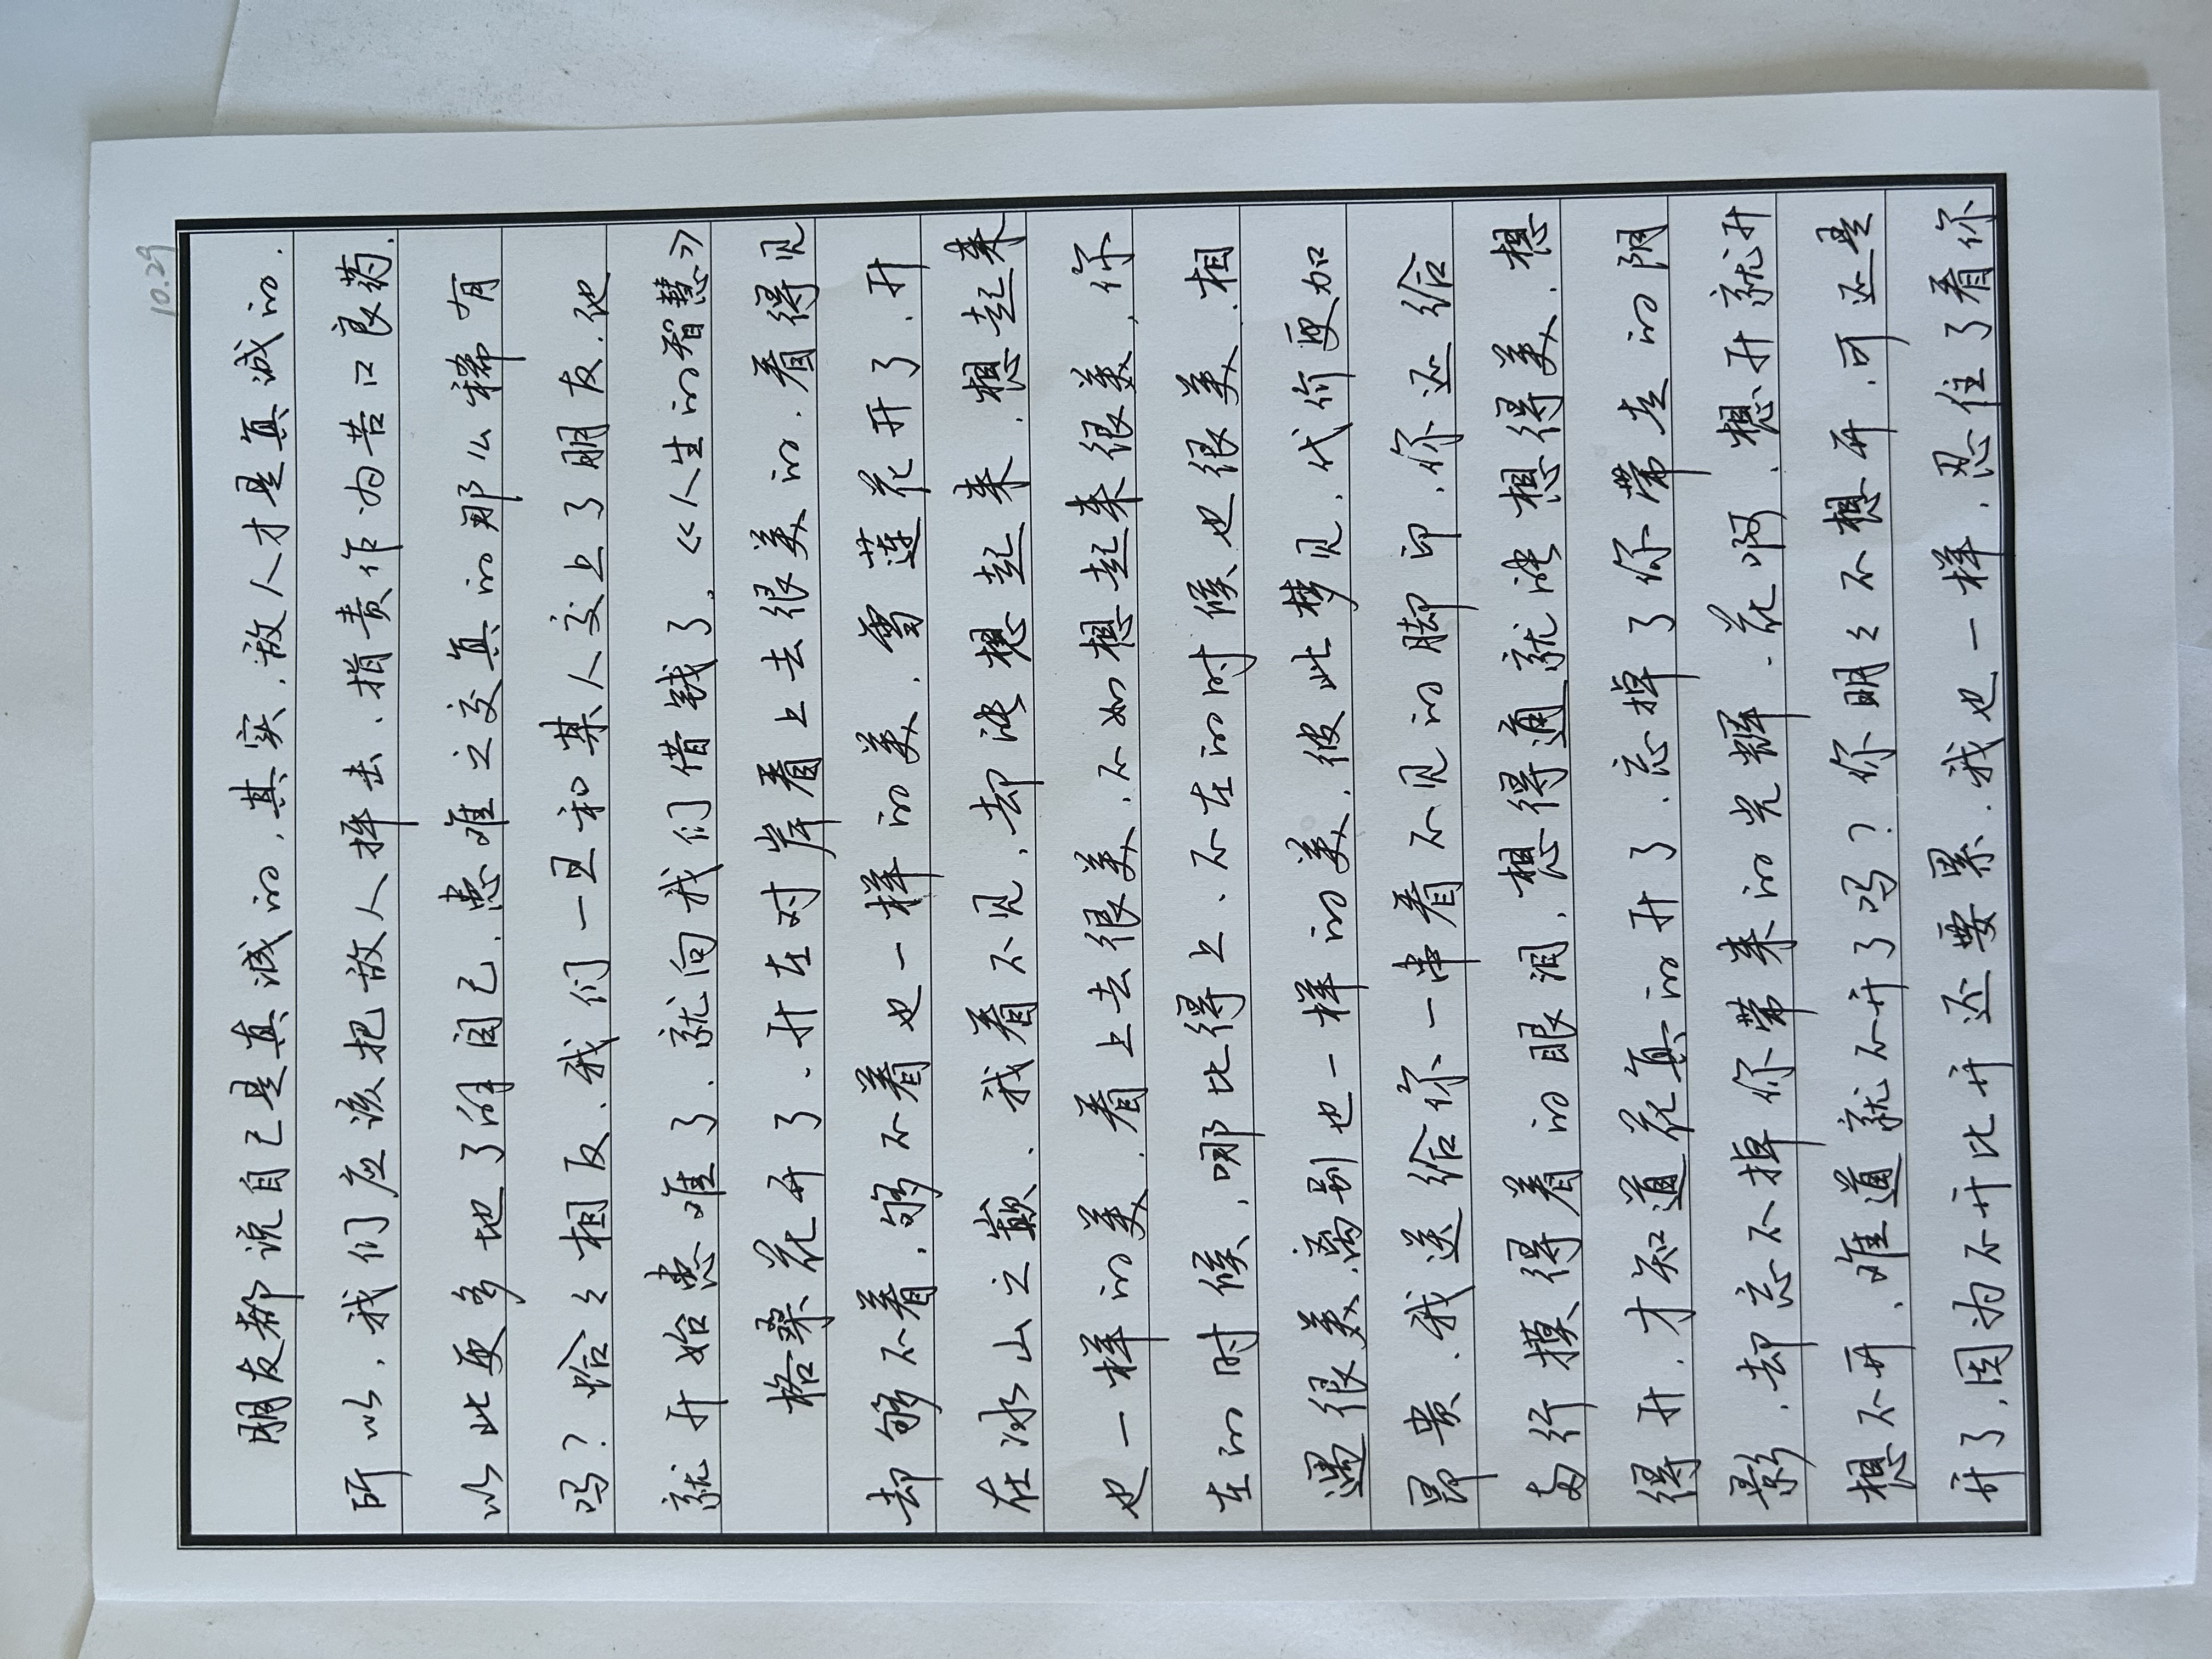 10.29
朋友都说自己是真诚的，其实，敌人才是真诚的.
所以，我们应该把敌人抨击、指责作为苦口良药.
以此更多地了解自己.患难之交真的那么稀有
吗？恰々相反.我们一旦和某人交上了朋友.他
就开始患难了.就向我们借钱了。《人生的智慧》
格桑花开了.开在对岸看上去很美的.看得见
却够不着，够不着也一样的美.雪莲花开了.开
在冰山之巅.我看不见，却能想起来，想起来
也一样的美.看上去很美，不如想起来很美，你
在的时候，哪比得上.不在的时候也很美.相
遇很美.离别也一样的美.彼此梦见，代价更加
昂贵.我送给你一串看不见的脚印，你还给
两行摸得着的眼泪，想得通就能想得美.想
得开.才知道花真的开了.忘掉了你带走的阴
影.却忘不掉你带来的光辉.花啊，想开就开
想不开，难道就不开了吗？你明々不想开，可还是
开了，因为不开比开还要累.我也一样，忍住了看你